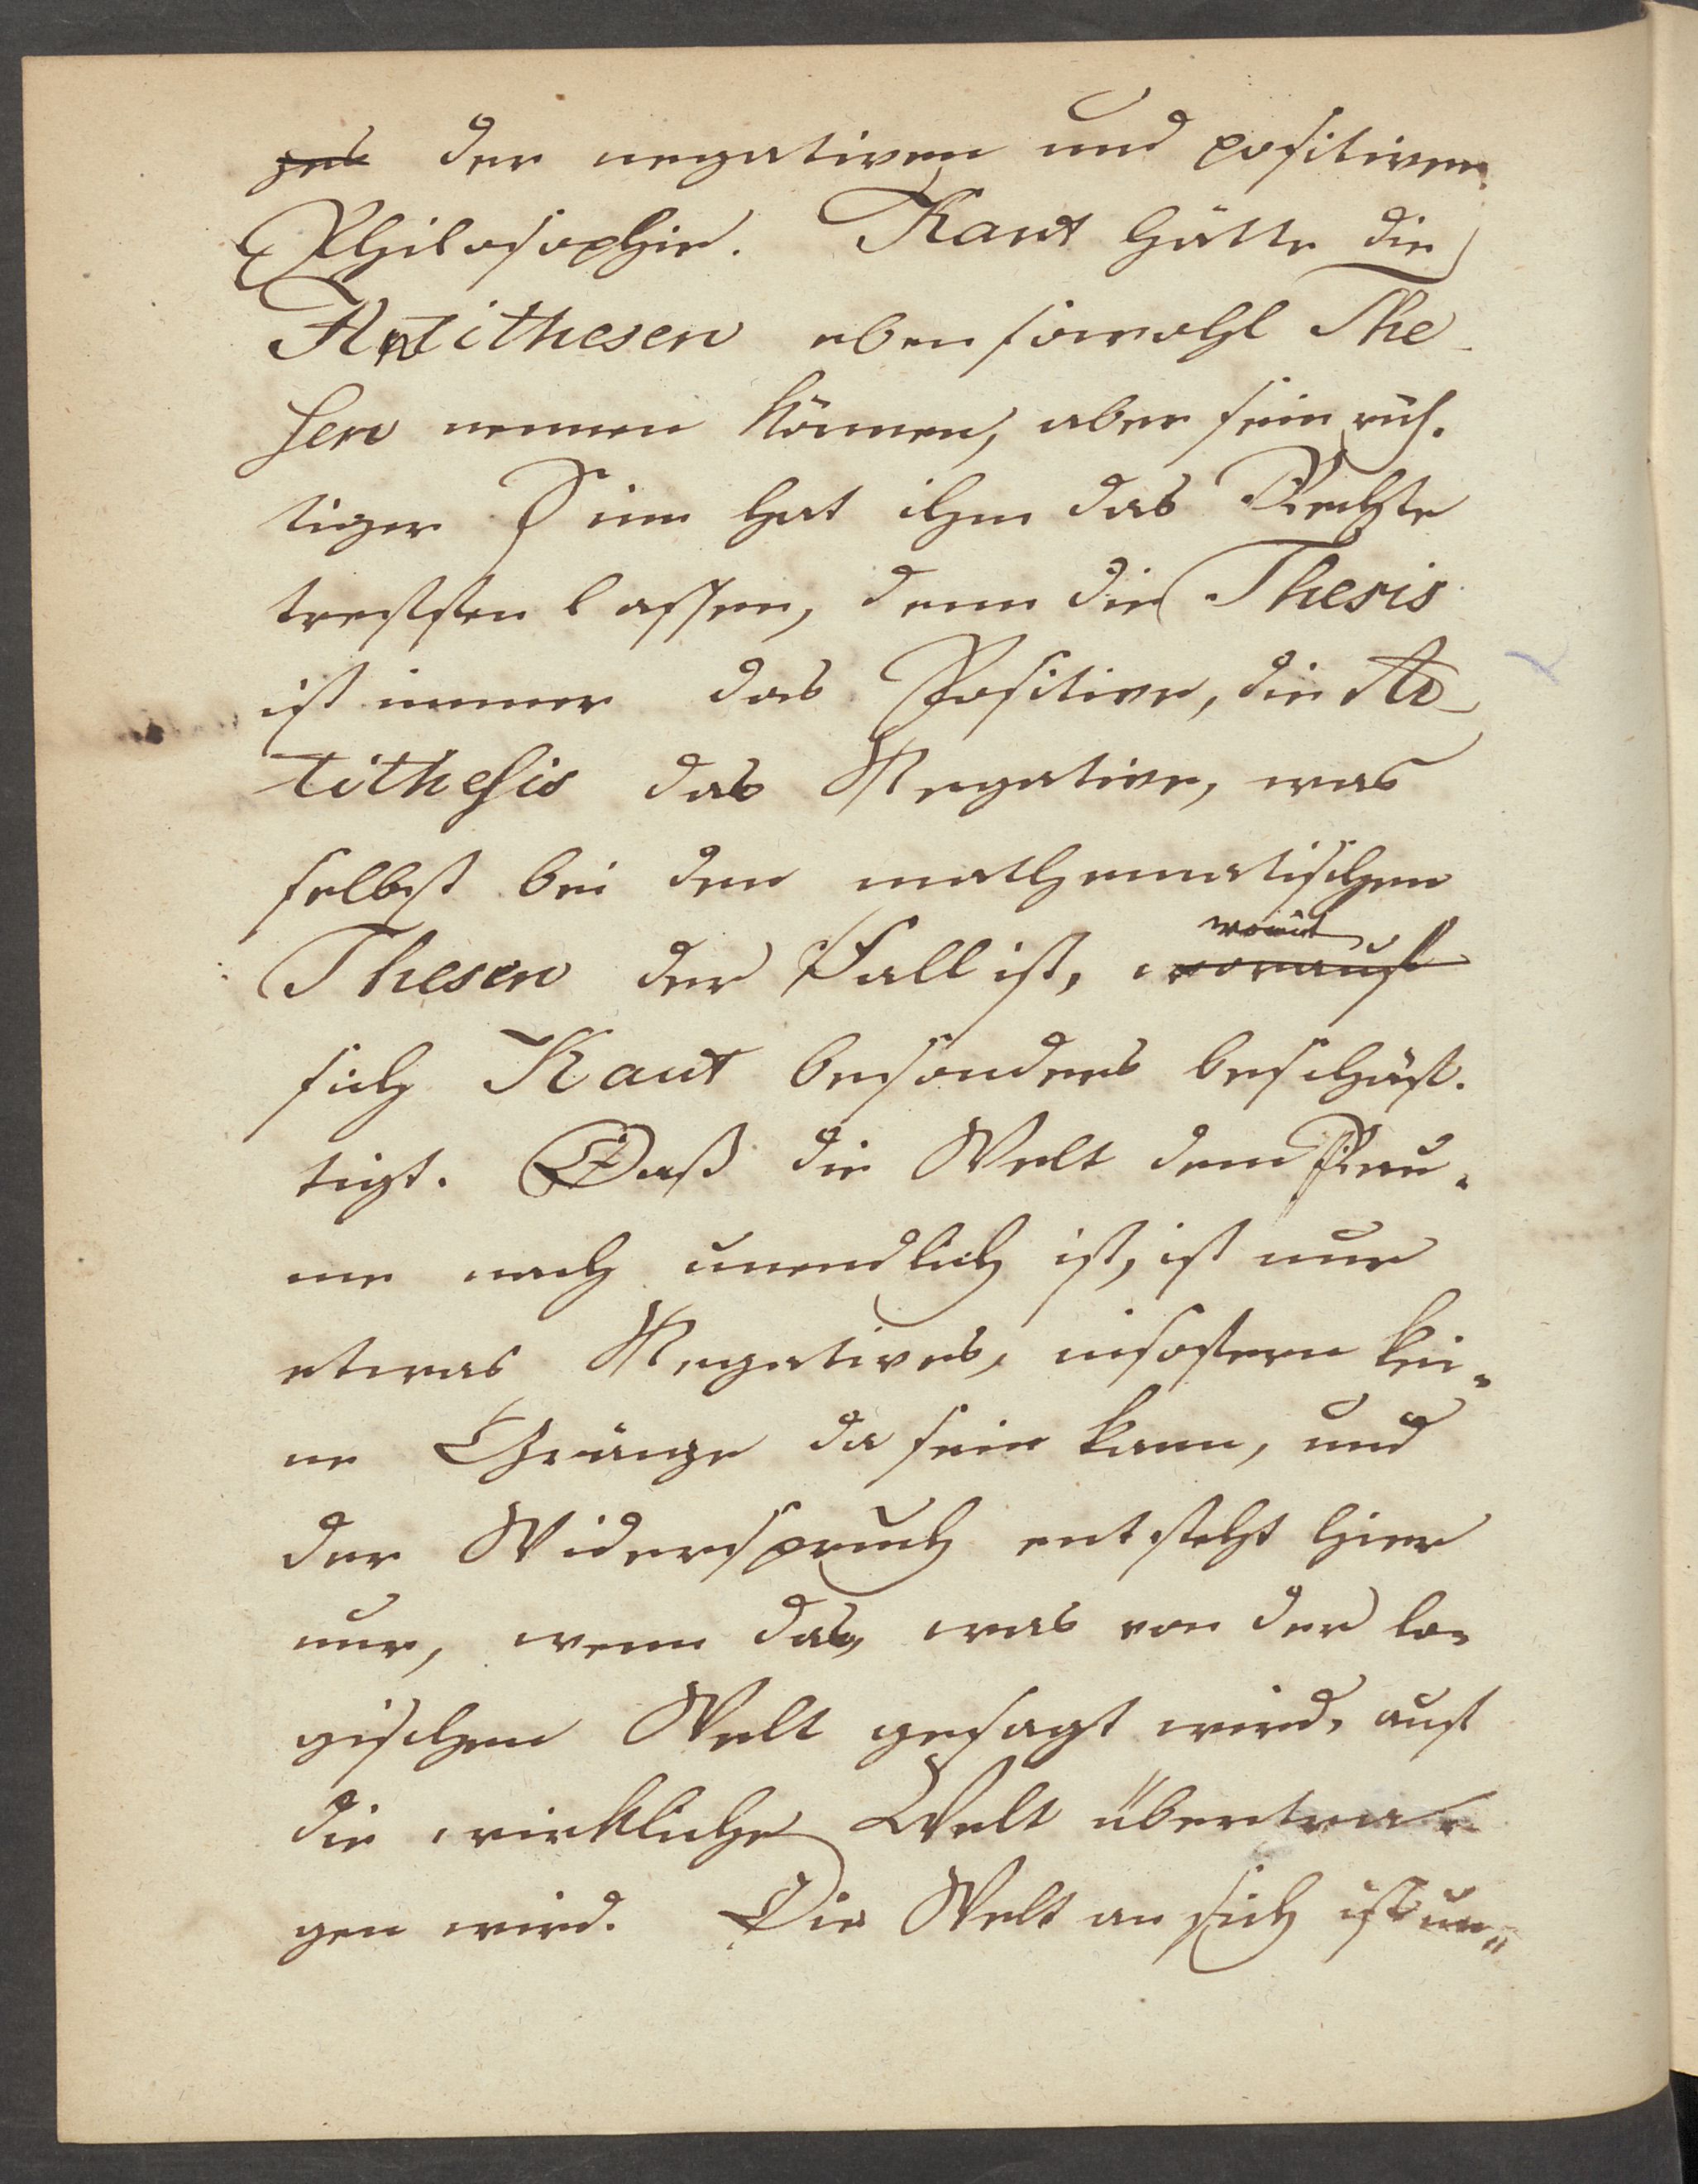 zes der negativen und positiven
Philosophie. Kant hätte die
Antithesen ebensowohl The-
sen nennen können, aber sein rich-
tiger Sinn hat ihm das Rechte
treffen lassen, denn die Thesis
ist immer das Positive, die An-
tithesis das Negative, was
selbst bei den mathematischen
womit
Thesen der Fall ist, worauf
sich Kant besonders beschäf-
tigt. Daß die Welt dem Rau-
me nach unendlich ist, ist nur
etwas Negatives, insofern kei-
ne Gränze da sein kann, und
der Widerspruch entsteht hier
nur, wenn das, was von der lo-
gischen Welt gesagt wird, auf
die wirkliche Welt übertra-
gen wird. Die Welt an sich ist un-